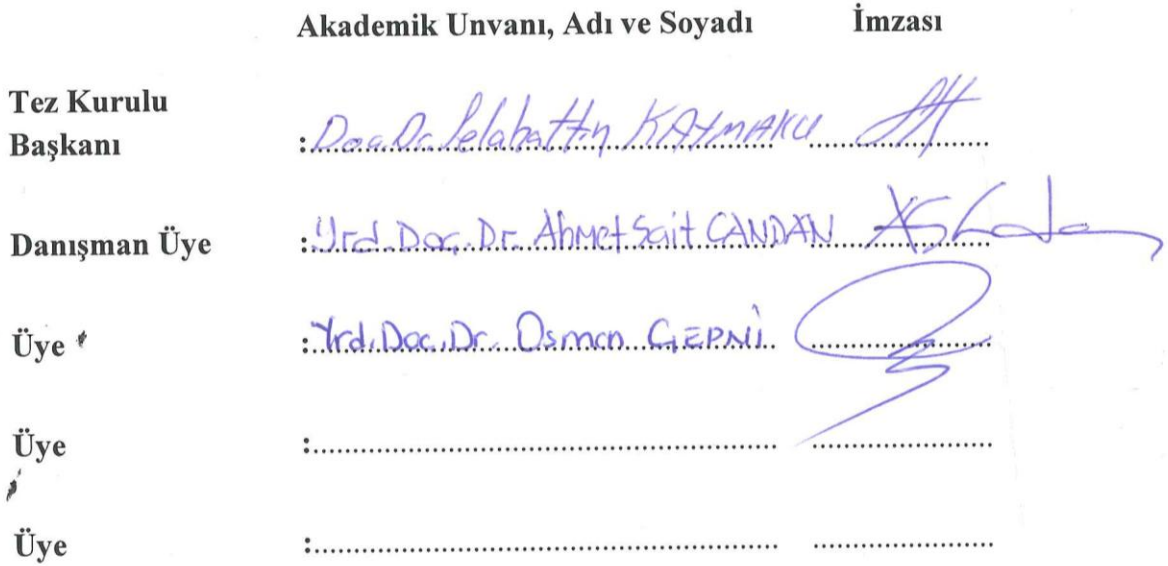 Akademik Unvanı, Adı ve Soyadı İmzası
Tez Kurulu
Başkanı :Doç.Dr. Selahattin KAYMAKCI
Danışman Üye :Yrd.Doç.Dr. Ahmet Sait CANDAN
Üye :Yrd.Doç.Dr. Osman ÇEPNİ
Üye :
Üye :